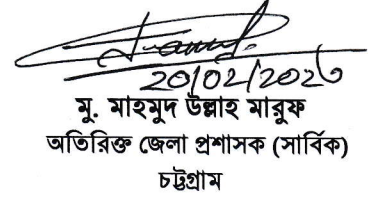 20/02/2023
মু. মাহমুদ উল্লাহ মারুফ
অতিরিক্ত জেলা প্রশাসক (সার্বিক)
চট্টগ্রাম